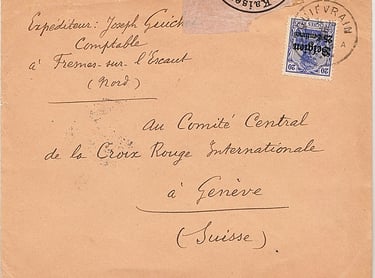 Expéditeur: Joseph Guich
Comptable
à Fresnes-sur-l'Escaut
(Nord)
Kaiser
QUIÉVRAIN
A
Belgien
25 Centimes
20
20
Au Comité Central
de la Croix Rouge Internationale
à Genève
(Suisse)